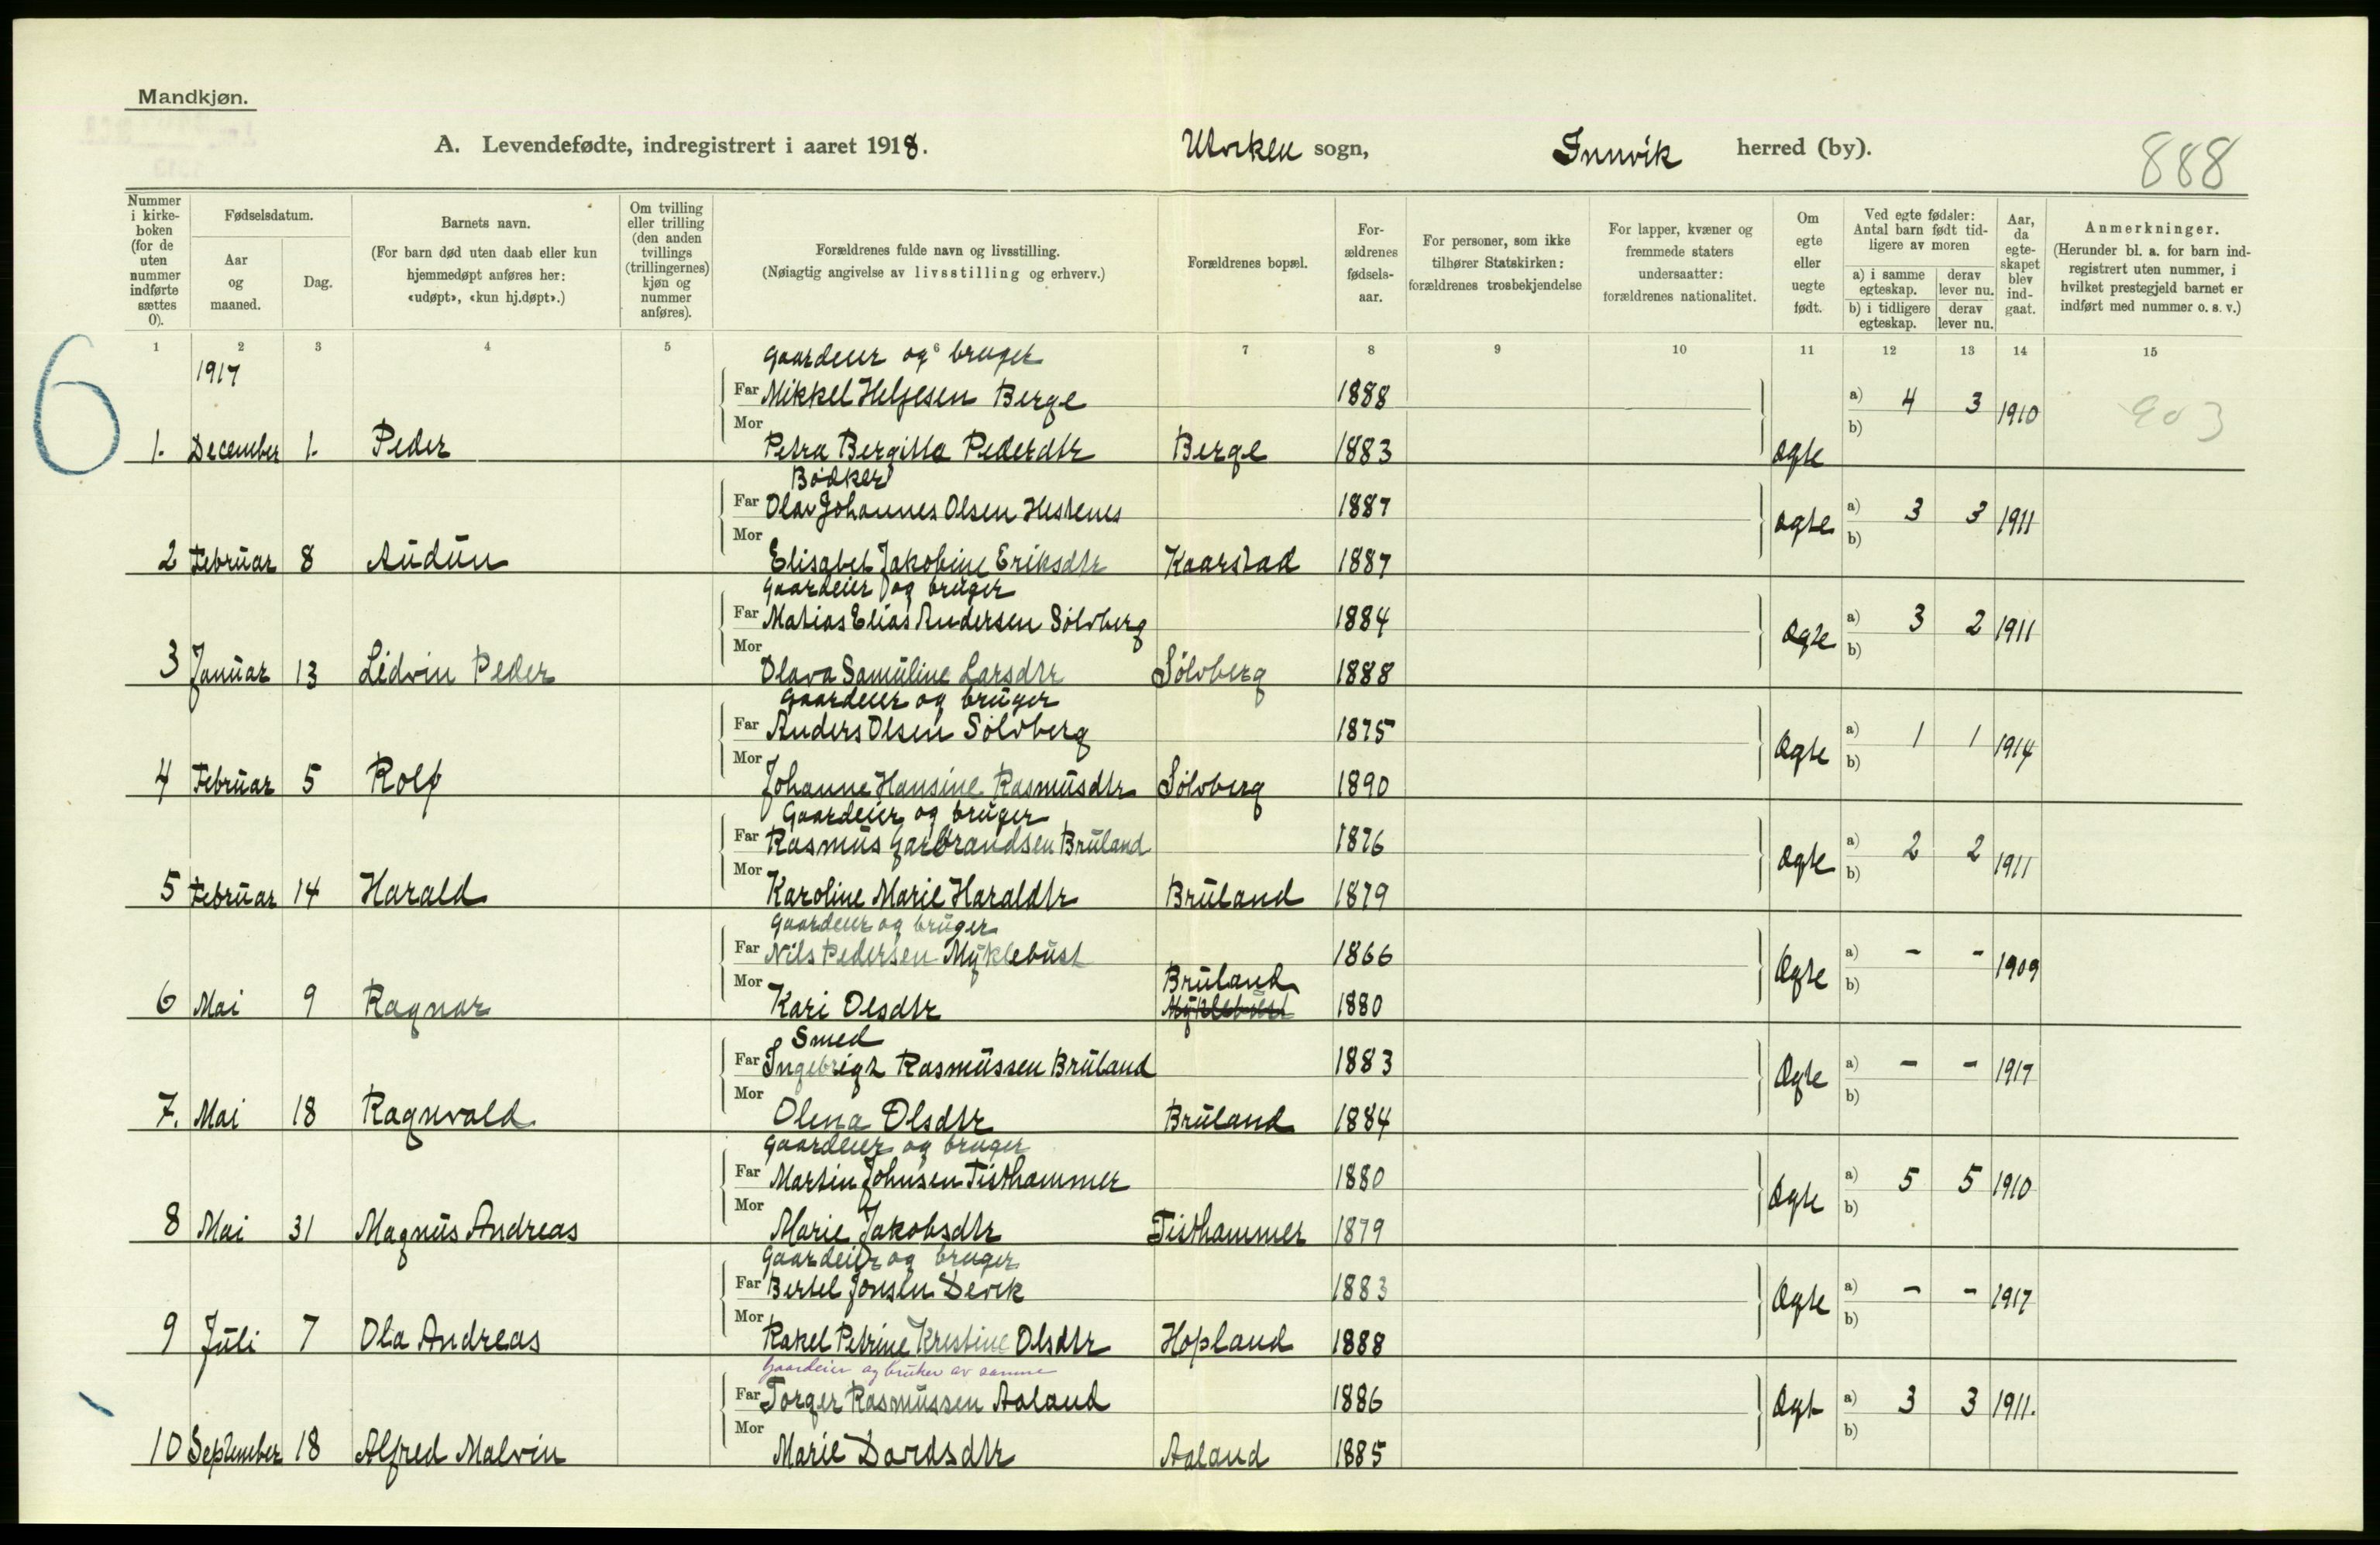 Mandkjøn.
A. Levendefødte, indregistrert i aaret 1918. Utviken sogn, Innvik herred (by). 888
Nummer i kirkeboken (for de uten nummer indførte sættes 0).
Fødselsdatum.
Aar og maaned.
Dag.
Barnets navn.
(For barn død uten daab eller kun hjemmedøpt anføres her: «udøpt», «kun hj.døpt».)
Om tvilling eller trilling (den anden tvillings (trillingernes) kjøn og nummer anføres).
Forældrenes fulde navn og livsstilling.
(Nøiagtig angivelse av livsstilling og erhverv.)
Forældrenes bopæl.
Forældrenes fødselsaar.
For personer, som ikke tilhører Statskirken: forældrenes trosbekjendelse
For lapper, kvæner og fremmede staters undersaatter: forældrenes nationalitet.
Om egte eller uegte født.
Ved egte fødsler: Antal barn født tidligere av moren
a) i samme egteskap. derav lever nu.
b) i tidligere egteskap. derav lever nu.
Aar, da egteskapet blev indgaat.
Anmerkninger.
(Herunder bl. a. for barn indregistrert uten nummer, i hvilket prestegjeld barnet er indført med nummer o. s. v.)
1 2 3 4 5 6 7 8 9 10 11 12 13 14 15
6
1917
Gaardeier og bruger
Far Mikkel Helgesen Berge 1888 a) 4 3 1910 903
Mor b)
1. December 1. Peder Petra Bergitta Pedersdtr Berge 1883 Ægte
Bødker
Far Olav Johannes Olsen Hestenes 1887 Ægte a) 3 3 1911
Mor b)
2 Februar 8 Audun Elisabet Jakobine Eriksdtr Kaarstad 1887
Gaardeier og bruger
Far Matias Elias Andersen Sølvberg 1884 Ægte a) 3 2 1911
Mor b)
3 Januar 13 Lidvin Peder Olava Samuline Larsdtr Sølvberg 1888
Gaardeier og bruger
Far Anders Olsen Sølvberg 1875 Ægte a) 1 1 1914
Mor b)
4 Februar 5 Rolf Johanne Hansine Rasmusdtr Sølvberg 1890
Gaardeier og bruger
Far Rasmus Garbrandsen Bruland 1876 Ægte a) 2 2 1911
Mor b)
5 Februar 14 Harald Karoline Marie Haraldtr Bruland 1879
Gaardeier og bruger
Far Nils Pedersen Myklebust 1866 Ægte a) - - 1909
Mor Bruland b)
6 Mai 9 Ragnar Kari Olsdtr Myklebust 1880
Smed
Far Ingebrigt Rasmussen Bruland 1883 Ægte a) - - 1917
Mor b)
7. Mai 18 Ragnvald Olena Olsdtr Bruland 1884
Gaardeier og bruger
Far Martin Johnsen Tisthammer 1880 Ægte a) 5 5 1910
Mor b)
8 Mai 31 Magnus Andreas Marie Jakobsdtr Tisthammer 1879
Gaardeier og bruger
Far Bertel Jonsen Devik 1883 Ægte a) - - 1917
Mor b)
9 Juli 7 Ola Andreas Rakel Petrine Kristine Olsdtr Hopland 1888
Gaardeier og bruker av samme
Far Torger Rasmussen Aaland 1886 Ægt a) 3 3 1911.
Mor b)
10 September 18 Alfred Malvin Marie Davidsdtr Aaland 1885